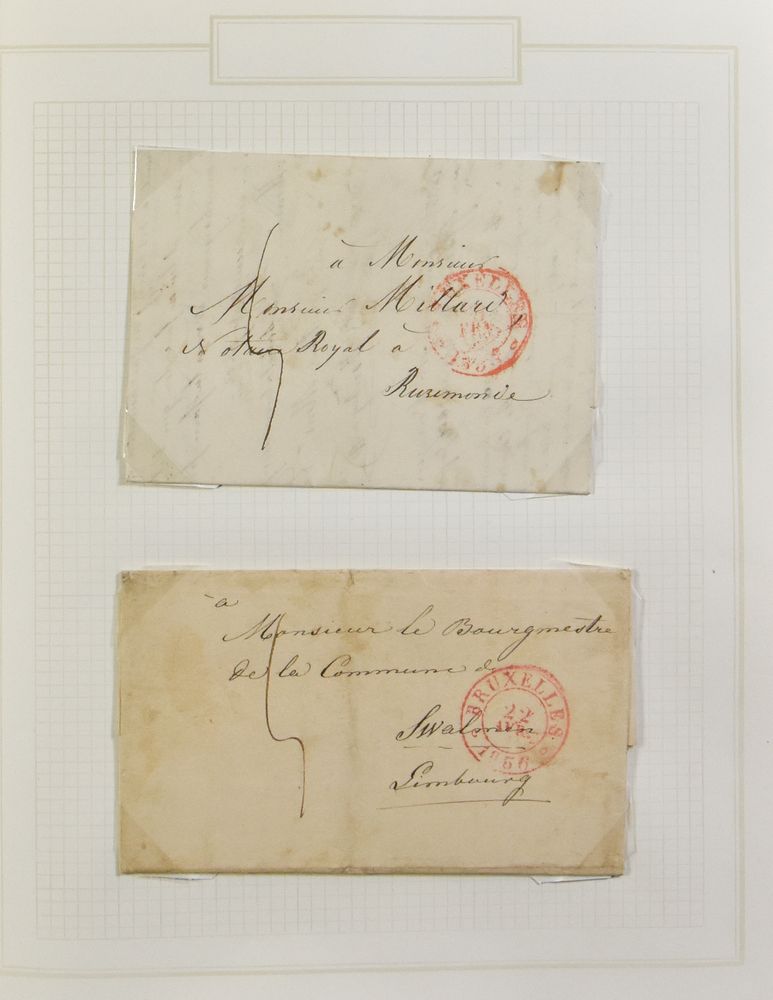 à Monsieur
Monsieur Millard,
Notaire Royal à
Ruremonde
BRUXELLES
à
Monsieur le Bourgmestre
de la Commune de
Swalmen
Limbourg
BRUXELLES
22
1856